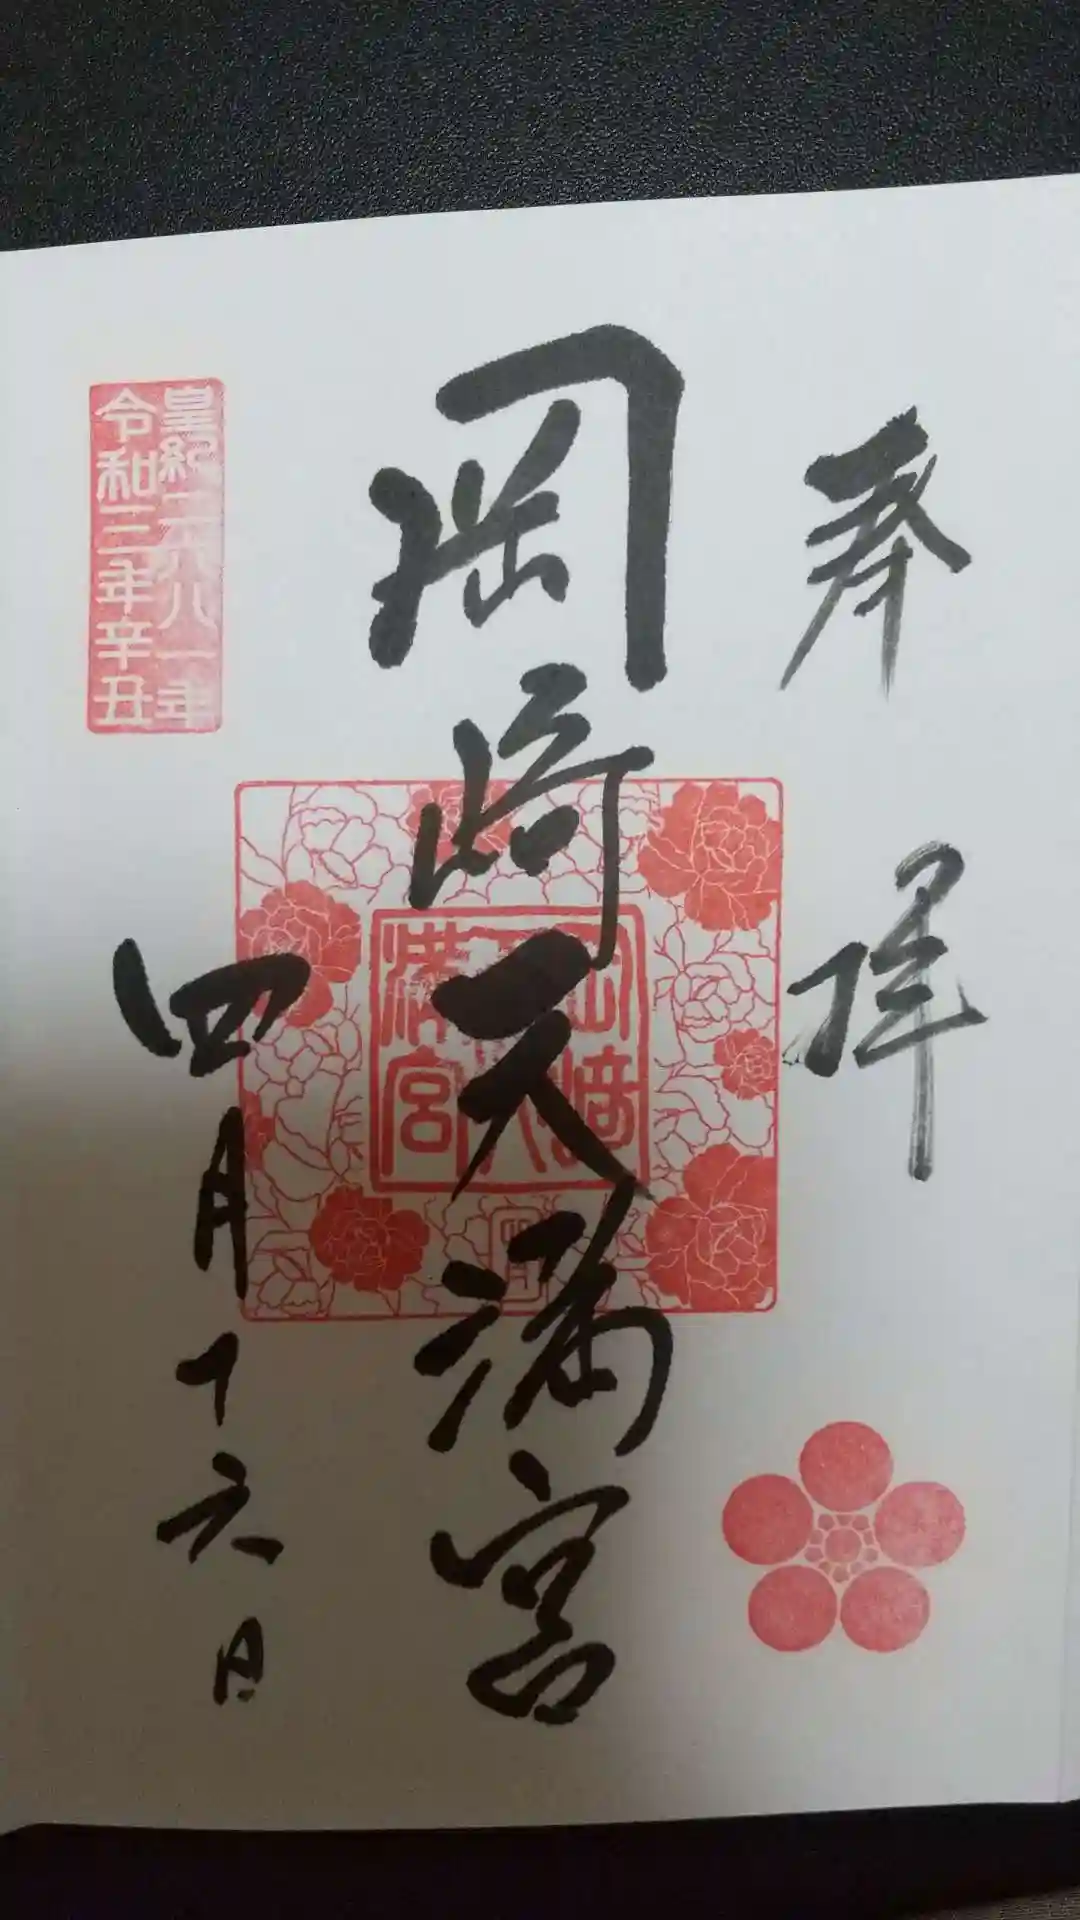 奉拝
岡崎天満宮
岡崎
天満
宮
皇紀二六八一年
令和三年辛丑
四月十六日